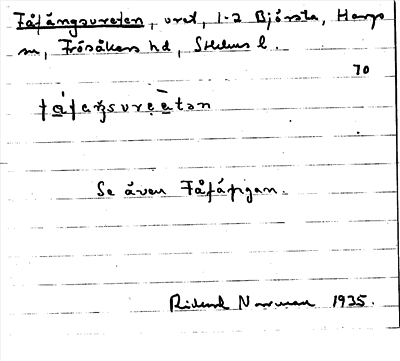 Fåfängsureten, uret, 1-2 Björsta, Hargs
sn, Frösåkers hd, Sthlms l.
70
Se även Fåfängan.
Rickard Norrman 1935.